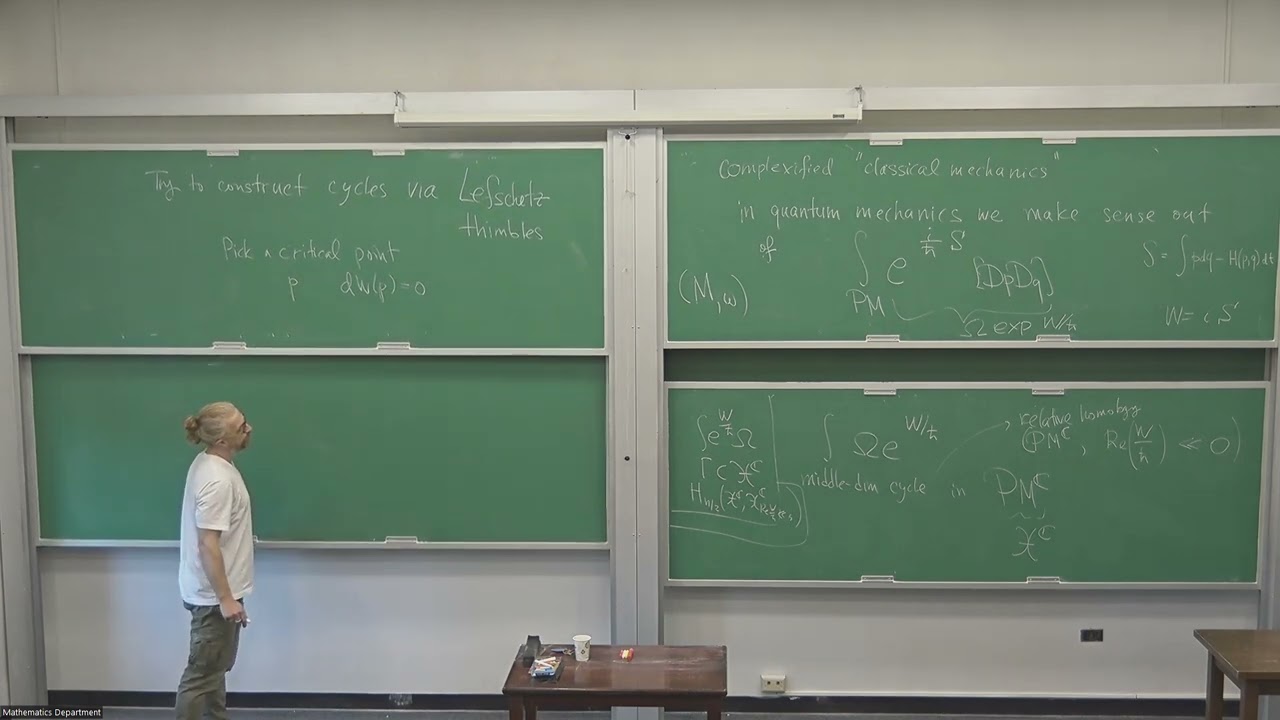 Try to construct cycles via Lefschetz
thimbles
Pick a critical point
p dW(p)=0
complexified "classical mechanics"
in quantum mechanics we make sense out
of ∫ e^{i/ħ S} [DpDq] S = ∫pdq - H(p,q)dt
(M,ω) PM
Ω exp W/ħ W = i S
∫e^{W/ħ}Ω
Γ ⊂ X^ℂ
∫ Ω e^{W/ħ}
relative homology
(PM^ℂ, Re(W/ħ) ≪ 0)
middle-dim cycle in PM^ℂ
X^ℂ
Mathematics Department